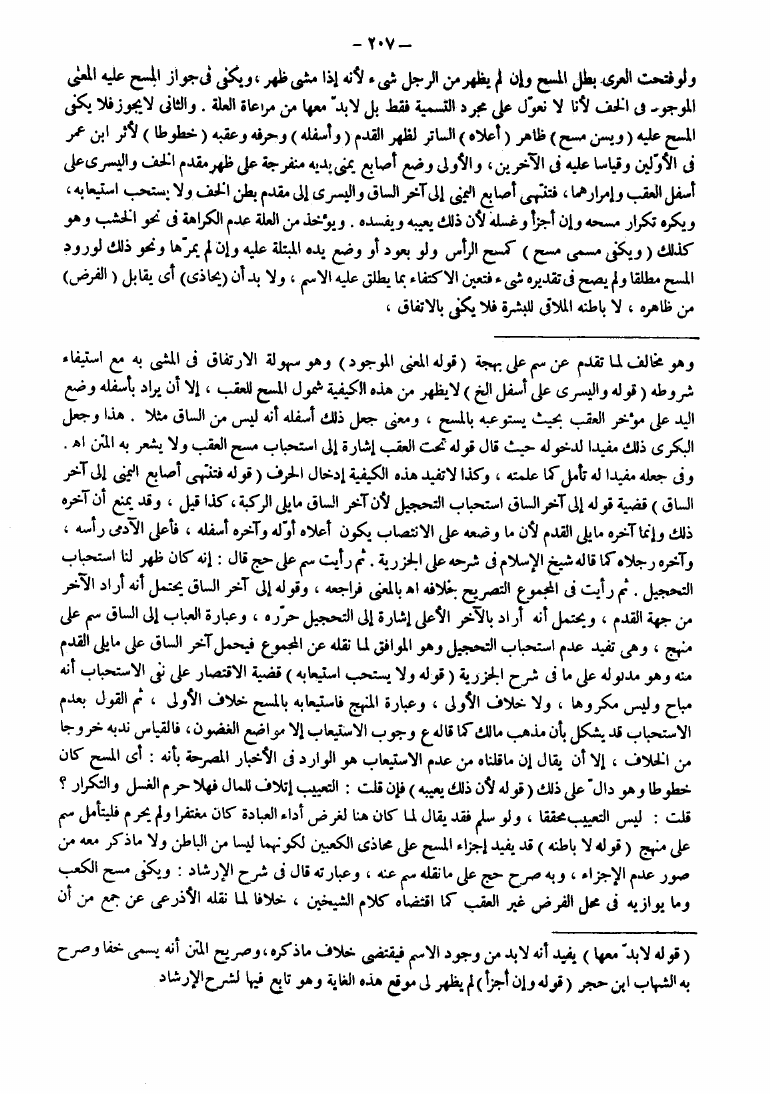 — ٢٠٧ —
ولو فتحت العرى بطل المسح وإن لم يظهر من الرجل شىء لأنه إذا مشى ظهر ، ويكفى فى جواز المسح عليه المعنى
الموجود فى الخف لأنا لا نعوّل على مجرد التسمية فقط بل لابدّ معها من مراعاة العلة . والثانى لا يجوز فلا يكفى
المسح عليه ( ويسن مسح ) ظاهر ( أعلاه ) الساتر لظهر القدم ( وأسفله ) وحرفه وعقبه ( خطوطا ) لأثر ابن عمر
فى الأوّلين وقياسا عليه فى الآخرين ، والأولى وضع أصابع يمنى يديه منفرجة على ظهر مقدم الخف واليسرى على
أسفل العقب وإمرارهما ، فتنتهى أصابع اليمنى إلى آخر الساق واليسرى إلى مقدم بطن الخف ولا يستحب استيعابه ،
ويكره تكرار مسحه وإن أجزأ وغسله لأن ذلك يعيبه ويفسده . ويؤخذ من العلة عدم الكراهة فى نحو الخشب وهو
كذلك ( ويكفى مسمى مسح ) كمسح الرأس ولو بعود أو وضع يده المبتلة عليه وإن لم يمرّها ونحو ذلك لورود
المسح مطلقا ولم يصح فى تقديره شىء فتعين الاكتفاء بما يطلق عليه الاسم ، ولا بد أن (يحاذى) أى يقابل ( الفرض)
من ظاهره ، لا باطنه الملاقى للبشرة فلا يكفى بالاتفاق ،
وهو مخالف لما تقدم عن سم على بهجة ( قوله المعنى الموجود ) وهو سهولة الارتفاق فى المشى به مع استيفاء
شروطه ( قوله واليسرى على أسفل الخ ) لا يظهر من هذه الكيفية شمول المسح للعقب ، إلا أن يراد بأسفله وضع
اليد على مؤخر العقب بحيث يستوعبه بالمسح ، ومعنى جعل ذلك أسفله أنه ليس من الساق مثلا . هذا وجعل
البكرى ذلك مفيدا لدخوله حيث قال قوله تحت العقب إشارة إلى استحباب مسح العقب ولا يشعر به المتن اه .
وفى جعله مفيدا له تأمل كما علمته ، وكذا لا تفيد هذه الكيفية إدخال الحرف ( قوله فتنتهى أصابع اليمنى إلى آخر
الساق ) قضية قوله إلى آخر الساق استحباب التحجيل لأن آخر الساق مايلى الركبة ، كذا قيل ، وقد يمنع أن آخره
ذلك وإنما آخره مايلى القدم لأن ما وضعه على الانتصاب يكون أعلاه أوّله وآخره أسفله ، فأعلى الآدمى رأسه ،
وآخره رجلاه كما قاله شيخ الإسلام فى شرحه على الجزرية . ثم رأيت سم على حج قال : إنه كان ظهر لنا استحباب
التحجيل . ثم رأيت فى المجموع التصريح بخلافه اه بالمعنى فراجعه ، وقوله إلى آخر الساق يحتمل أنه أراد الآخر
من جهة القدم ، ويحتمل أنه أراد بالآخر الأعلى إشارة إلى التحجيل حرّره ، وعبارة العباب إلى الساق سم على
منهج ، وهى تفيد عدم استحباب التحجيل وهو الموافق لما نقله عن المجموع فيحمل آخر الساق على مايلى القدم
منه وهو مدلوله على ما فى شرح الجزرية ( قوله ولا يستحب استيعابه ) قضية الاقتصار على نفى الاستحباب أنه
مباح وليس مكروها ، ولا خلاف الأولى ، وعبارة المنهج فاستيعابه بالمسح خلاف الأولى ، ثم القول بعدم
الاستحباب قد يشكل بأن مذهب مالك كما قاله ع وجوب الاستيعاب إلا مواضع الغضون ، فالقياس ندبه خروجا
من الخلاف ، إلا أن يقال إن ماقلناه من عدم الاستيعاب هو الوارد فى الأخبار المصرحة بأنه : أى المسح كان
خطوطا وهو دالّ على ذلك ( قوله لأن ذلك يعيبه ) فإن قلت : التعييب إتلاف للمال فهلا حرم الغسل والتكرار ؟
قلت : ليس التعييب محققا ، ولو سلم فقد يقال لما كان هنا لغرض أداء العبادة كان مغتفرا ولم يحرم فليتأمل سم
على منهج ( قوله لا باطنه ) قد يفيد إجزاء المسح على محاذى الكعبين لكونهما ليسا من الباطن ولا ماذكر معه من
صور عدم الإجزاء ، وبه صرح حج على مانقله سم عنه ، وعبارته قال فى شرح الإرشاد : ويكفى مسح الكعب
وما يوازيه فى محل الفرض غير العقب كما اقتضاه كلام الشيخين ، خلافا لما نقله الأذرعى عن جمع من أن
( قوله لابدّ معها ) يفيد أنه لابد من وجود الاسم فيقتضى خلاف ماذكره ، وصريح المتن أنه يسمى خفا وصرح
به الشهاب ابن حجر ( قوله وإن أجزأ ) لم يظهر لى موقع هذه الغاية وهو تابع فيها لشرح الإرشاد